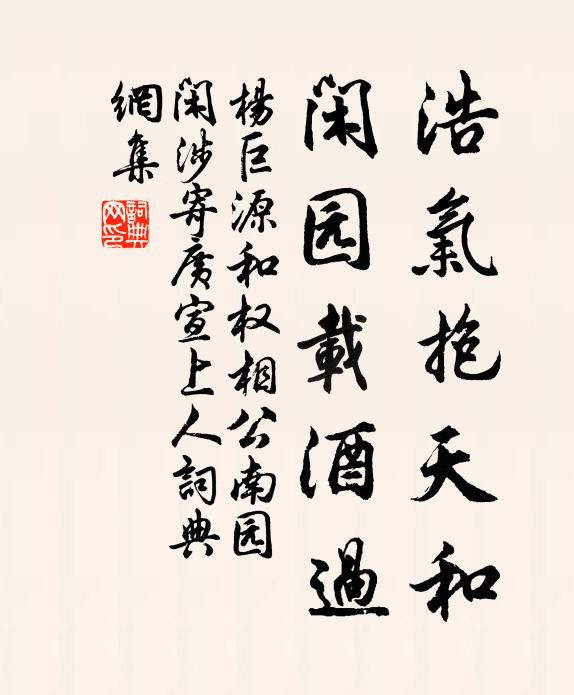 浩氣抱天和
闲园載酒過
楊巨源和权相公南园
闲涉寄廣宣上人詞典
網集
詞典
网印